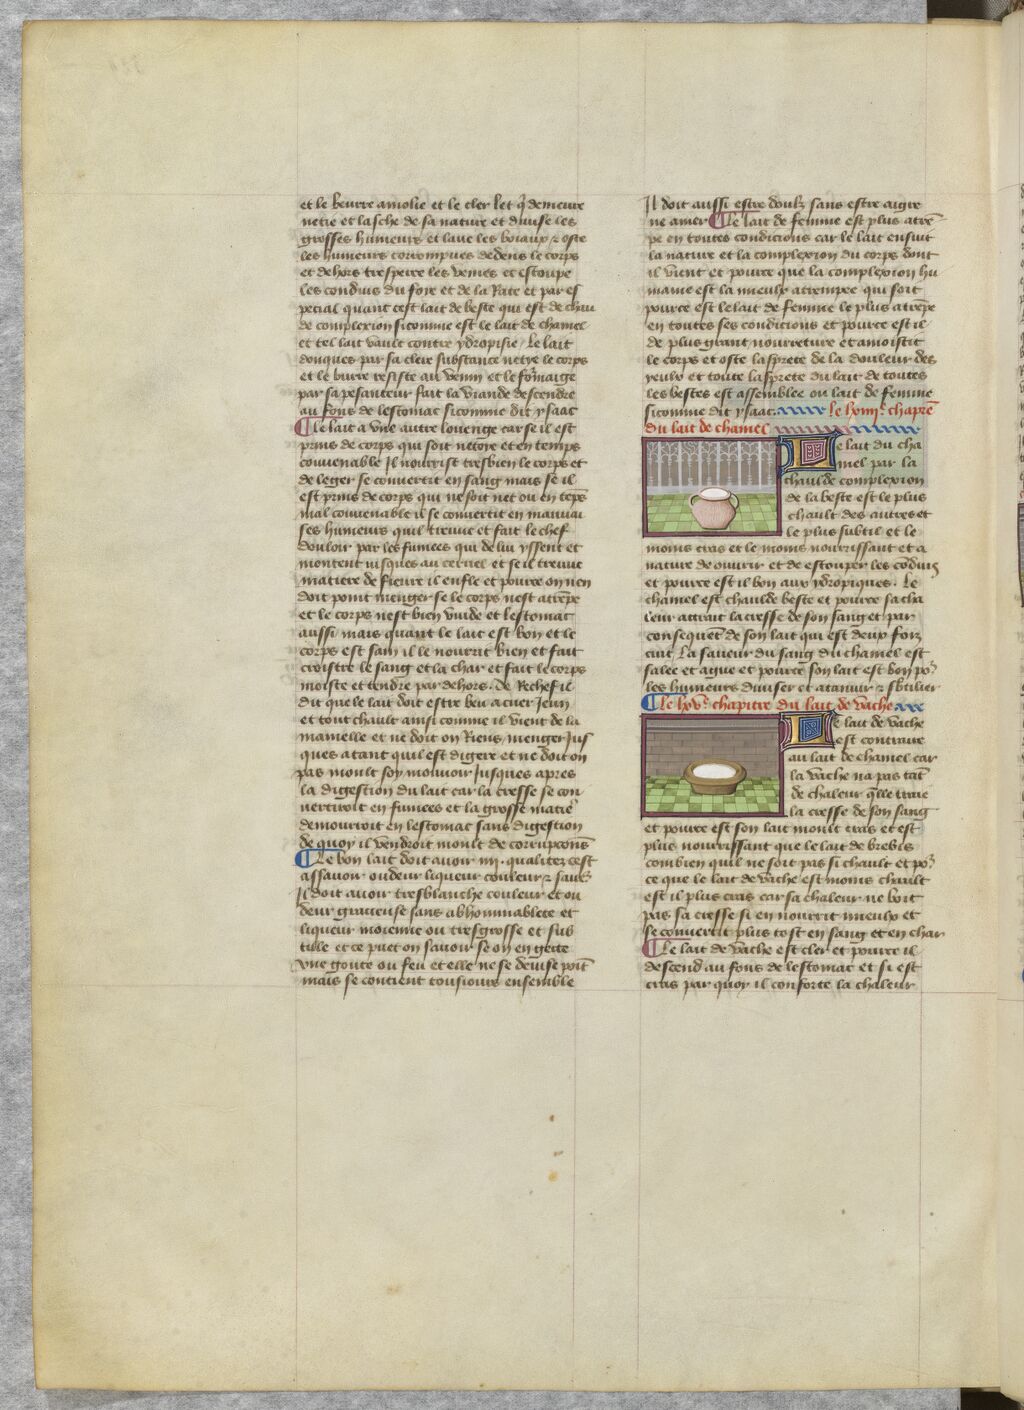 et le beurre amolie et le cler let q̄ demeure
netie et lasche de sa nature et diuise les
grosses humeurs et laue les boiaux ⁊ oste
les humeurs corrompues dedens le corps
et dehors trespeire les vennes et estoupe
les conduis du foye et de la Rate et par es
pecial quant cest lait de beste qui est de chau
de complexion sicomme est le lait de chamel
et tel lait vault contre ydropisie. Le lait
donques par sa clere substance netye le corps
et le burre resiste au venin et le fo᷑maige
par sa pesanteur fait la viande descendre
au fons de lestomac sicomme dit ysaac
¶ Le lait a vne autre louenge car se il est
prins de corps qui soit nettoye et en temps
conuenable Il nourrist tresbien le corps et
de leger se conuertit en sang mais se il
est prins de corps qui ne soit net ou en tēps
mal conuenable il se conuertit en mauuai
ses humeurs quil treuue et fait le chef
douloir par les fumees qui de lui yssent et
montent iusques au cernel et se il treuue
matiere de fieure il enfle et pource on nen
doit point menger se le corps nest atrēpe
et le corps nest bien vuide et lestomac
aussi mais quant le lait est bon et le
corps est sain il le nourrit bien et fait
croistre le sang et la char et fait le corps
moiste et tendre par dehors. De Rechef il
dit que le lait doit estre beu a cuer Jeun
et tout chault ainsi comme il vient de la
mamelle et ne doit on Riens menger Jus
ques atant quil est digere et ne doit on
pas moult soy mouuoir Jusques apres
la digestion du lait car la cresse se con
uertiroit en fumees et la grosse matie᷑
demourroit en lestomac sans digestion
de quoy il vendroit moult de corrupcions
¶ Le bon lait doit auoir iiii. qualitez cest
assauoir oudeur liqueur couleur ⁊ saue᷑
Il doit auoir tresblanche couleur et ou
deur gracieuse sans abhominablete et
liqueur moienne ou tresgrosse et sub
tille et ce puet on sauoir se on en gette
vne goute ou feu et elle ne se deuise poīt
mais se contient tousiours ensemble
Il doit aussi estre doulz sans estre aigre
ne amer ¶ Le lait de femme est plus atrē
pe en toutes condicions car le lait ensuit
la nature et la complexion du corps dont
il vient et pource que la complexion hu
maine est la mieulx attrempee qui soit
pource est le lait de femme le plus atrēpe
en toutes ses condicions et pource est il
de plus grant nourreture et amoistit
le corps et oste lasprete de la douleur des
yeulx et toute lasprete du lait de toutes
les bestes est assemblee ou lait de femme
sicomme dit ysaac. le lxiiiiᵉ chapr̄e
du lait de chamel
Le lait du cha
mel par la
chaulde complexion
de la beste est le plus
chault des autres et
le plus subtil et le
moins cras et le moins nourrissant et a
nature de ouurir et de estouper les cōduis
et pource est il bon aux ydropiques. Le
chamel est chaulde beste et pource sa cha
leur attrait la cresse de son sang et par
consequēt de son lait qui est deux foiz
cuit La saueur du sang du chamel est
salee et ague et pource son lait est bon po᷑
les humeurs diuiser et atanuir ⁊ sbtilier
¶ Le lxvᵉ chapitre du lait de vache
Le lait de vache
est contraire
au lait de chamel car
la vache na pas tāt
de chaleur q̄lle traie
la cresse de son sang
et pource est son lait moult cras et est
plus nourrissant que le lait de brebis
combien quil ne soit pas si chault et po᷑
ce que le lait de vache est moins chault
est il plus cras car sa chaleur ne boit
pas sa cresse si en nourrit mieulx et
se conuertit plus tost en sang et en char
¶ Le lait de vache est cler et pource il
descend au fons de lestomac et si est
cras par quoy il conforte la chaleur